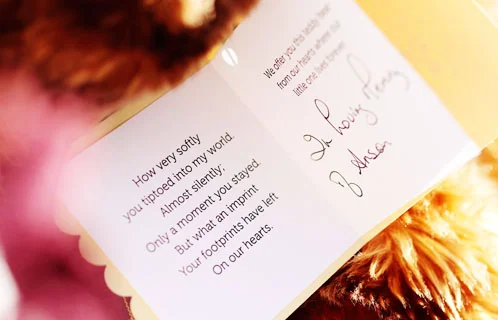 How very softly
you tiptoed into my world.
Almost silently;
Only a moment you stayed.
But what an imprint
Your footprints have left
On our hearts.
We offer you this teddy bear
from our hearts where our
little one lives forever.
In loving